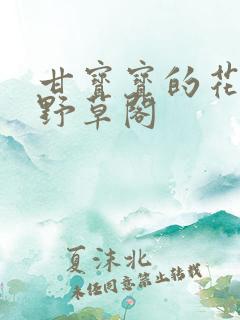 甘寳寳的花
野草閣
夏沫北
未经同意禁止转载